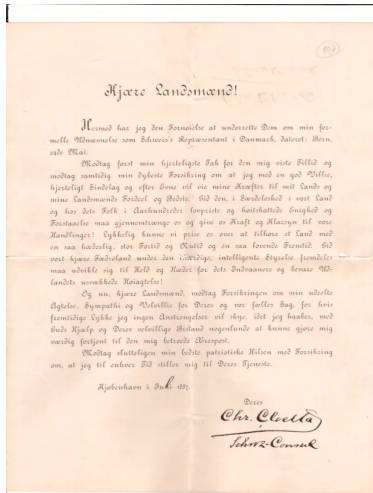 Kjære Landsmænd!
Hermed har jeg den Fornøielse at underrette Dem om min for-
melle Udnævnelse som Schweiz's Repræsentant i Danmark, dateret: Bern,
Mai.
Modtag først min hjerteligste Tak for den mig viste Tillid og
modtag samtidig min dybeste Forsikring om at jeg med en god Villie,
hjerteligt Sindelag og efter Evne vil vie mine Kræfter til mit Lands og
mine Landsmænds Fordeel og Bedste. Gid den, i Særdeleshed i vort Land
og hos dets Folk i Aarhundreder lovpriste og høitskattede Enighed og
Forstaaelse maa gjennemtrænge os og give os Kraft og Klarsyn til vore
Handlinger! Lykkelig kunne vi prise os over at tilhøre et Land med
en saa hæderlig, stor Fortid og Nutid og en saa lovende Fremtid. Gid
vort kjære Fædreland under den intelligente Styrelse fremdeles
maa udvikle sig til Held og Hæder for dets Indvaanere og bevare Ud-
landets usvækkede Høiagtelse!
Og nu, kjære Landsmænd, modtag Forsikringen om min udeelte
Agtelse, Sympathi og Velvillie for Deres og vor fælles Sag, for hvis
fremtidige Lykke jeg ingen Anstrengelser vil skye, idet jeg haaber, med
Guds Hjælp og Deres velvillige Bistand nogenlunde at kunne gjøre mig
værdig fortjent til den mig betroede Ærespost.
Modtag sluttelig min bedste patriotiske Hilsen med Forsikring
om, at jeg til enhver Tid stiller mig til Deres Tjeneste.
Kjøbenhavn i Juli
Deres
Chr. Cloëtta
Schwz-Consul